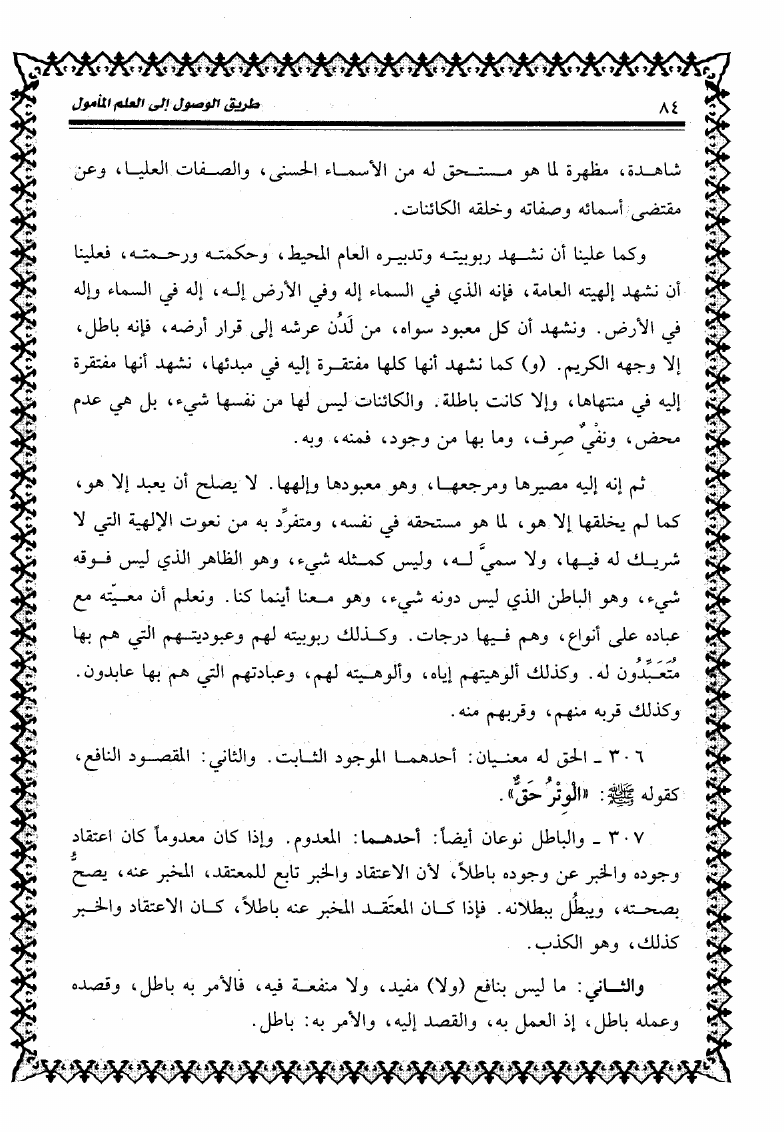 ٨٤ طريق الوصول إلى العلم المأمول
شاهدة، مظهرة لما هو مستحق له من الأسماء الحسنى، والصفات العليا، وعن
مقتضى أسمائه وصفاته وخلقه الكائنات.
وكما علينا أن نشهد ربوبيته وتدبيره العام المحيط، وحكمته ورحمته، فعلينا
أن نشهد إلهيته العامة، فإنه الذي في السماء إله وفي الأرض إله، إله في السماء وإله
في الأرض. ونشهد أن كل معبود سواه، من لَدُن عرشه إلى قرار أرضه، فإنه باطل،
إلا وجهه الكريم. (و) كما نشهد أنها كلها مفتقرة إليه في مبدئها، نشهد أنها مفتقرة
إليه في منتهاها، وإلا كانت باطلة. والكائنات ليس لها من نفسها شيء، بل هي عدم
محض، ونفْيٌ صِرف، وما بها من وجود، فمنه، وبه.
ثم إنه إليه مصيرها ومرجعها، وهو معبودها وإلهها. لا يصلح أن يعبد إلا هو،
كما لم يخلقها إلا هو، لما هو مستحقه في نفسه، ومتفرِّد به من نعوت الإلهية التي لا
شريك له فيها، ولا سميَّ له، وليس كمثله شيء، وهو الظاهر الذي ليس فوقه
شيء، وهو الباطن الذي ليس دونه شيء، وهو معنا أينما كنا. ونعلم أن معيّته مع
عباده على أنواع، وهم فيها درجات. وكذلك ربوبيته لهم وعبوديتهم التي هم بها
مُتَعَبِّدُون له. وكذلك ألوهيتهم إياه، وألوهيته لهم، وعبادتهم التي هم بها عابدون.
وكذلك قربه منهم، وقربهم منه.
٣٠٦ ـ الحق له معنيان: أحدهما الموجود الثابت. والثاني: المقصود النافع،
كقوله ﷺ: «الْوِتْرُ حَقٌّ».
٣٠٧ ـ والباطل نوعان أيضاً: أحدهما: المعدوم. وإذا كان معدوماً كان اعتقاد
وجوده والخبر عن وجوده باطلاً، لأن الاعتقاد والخبر تابع للمعتقد، المخبر عنه، يصحُّ
بصحته، ويبطُل ببطلانه. فإذا كان المعتَقد المخبر عنه باطلاً، كان الاعتقاد والخبر
كذلك، وهو الكذب.
والثاني: ما ليس بنافع (ولا) مفيد، ولا منفعة فيه، فالأمر به باطل، وقصده
وعمله باطل، إذ العمل به، والقصد إليه، والأمر به: باطل.